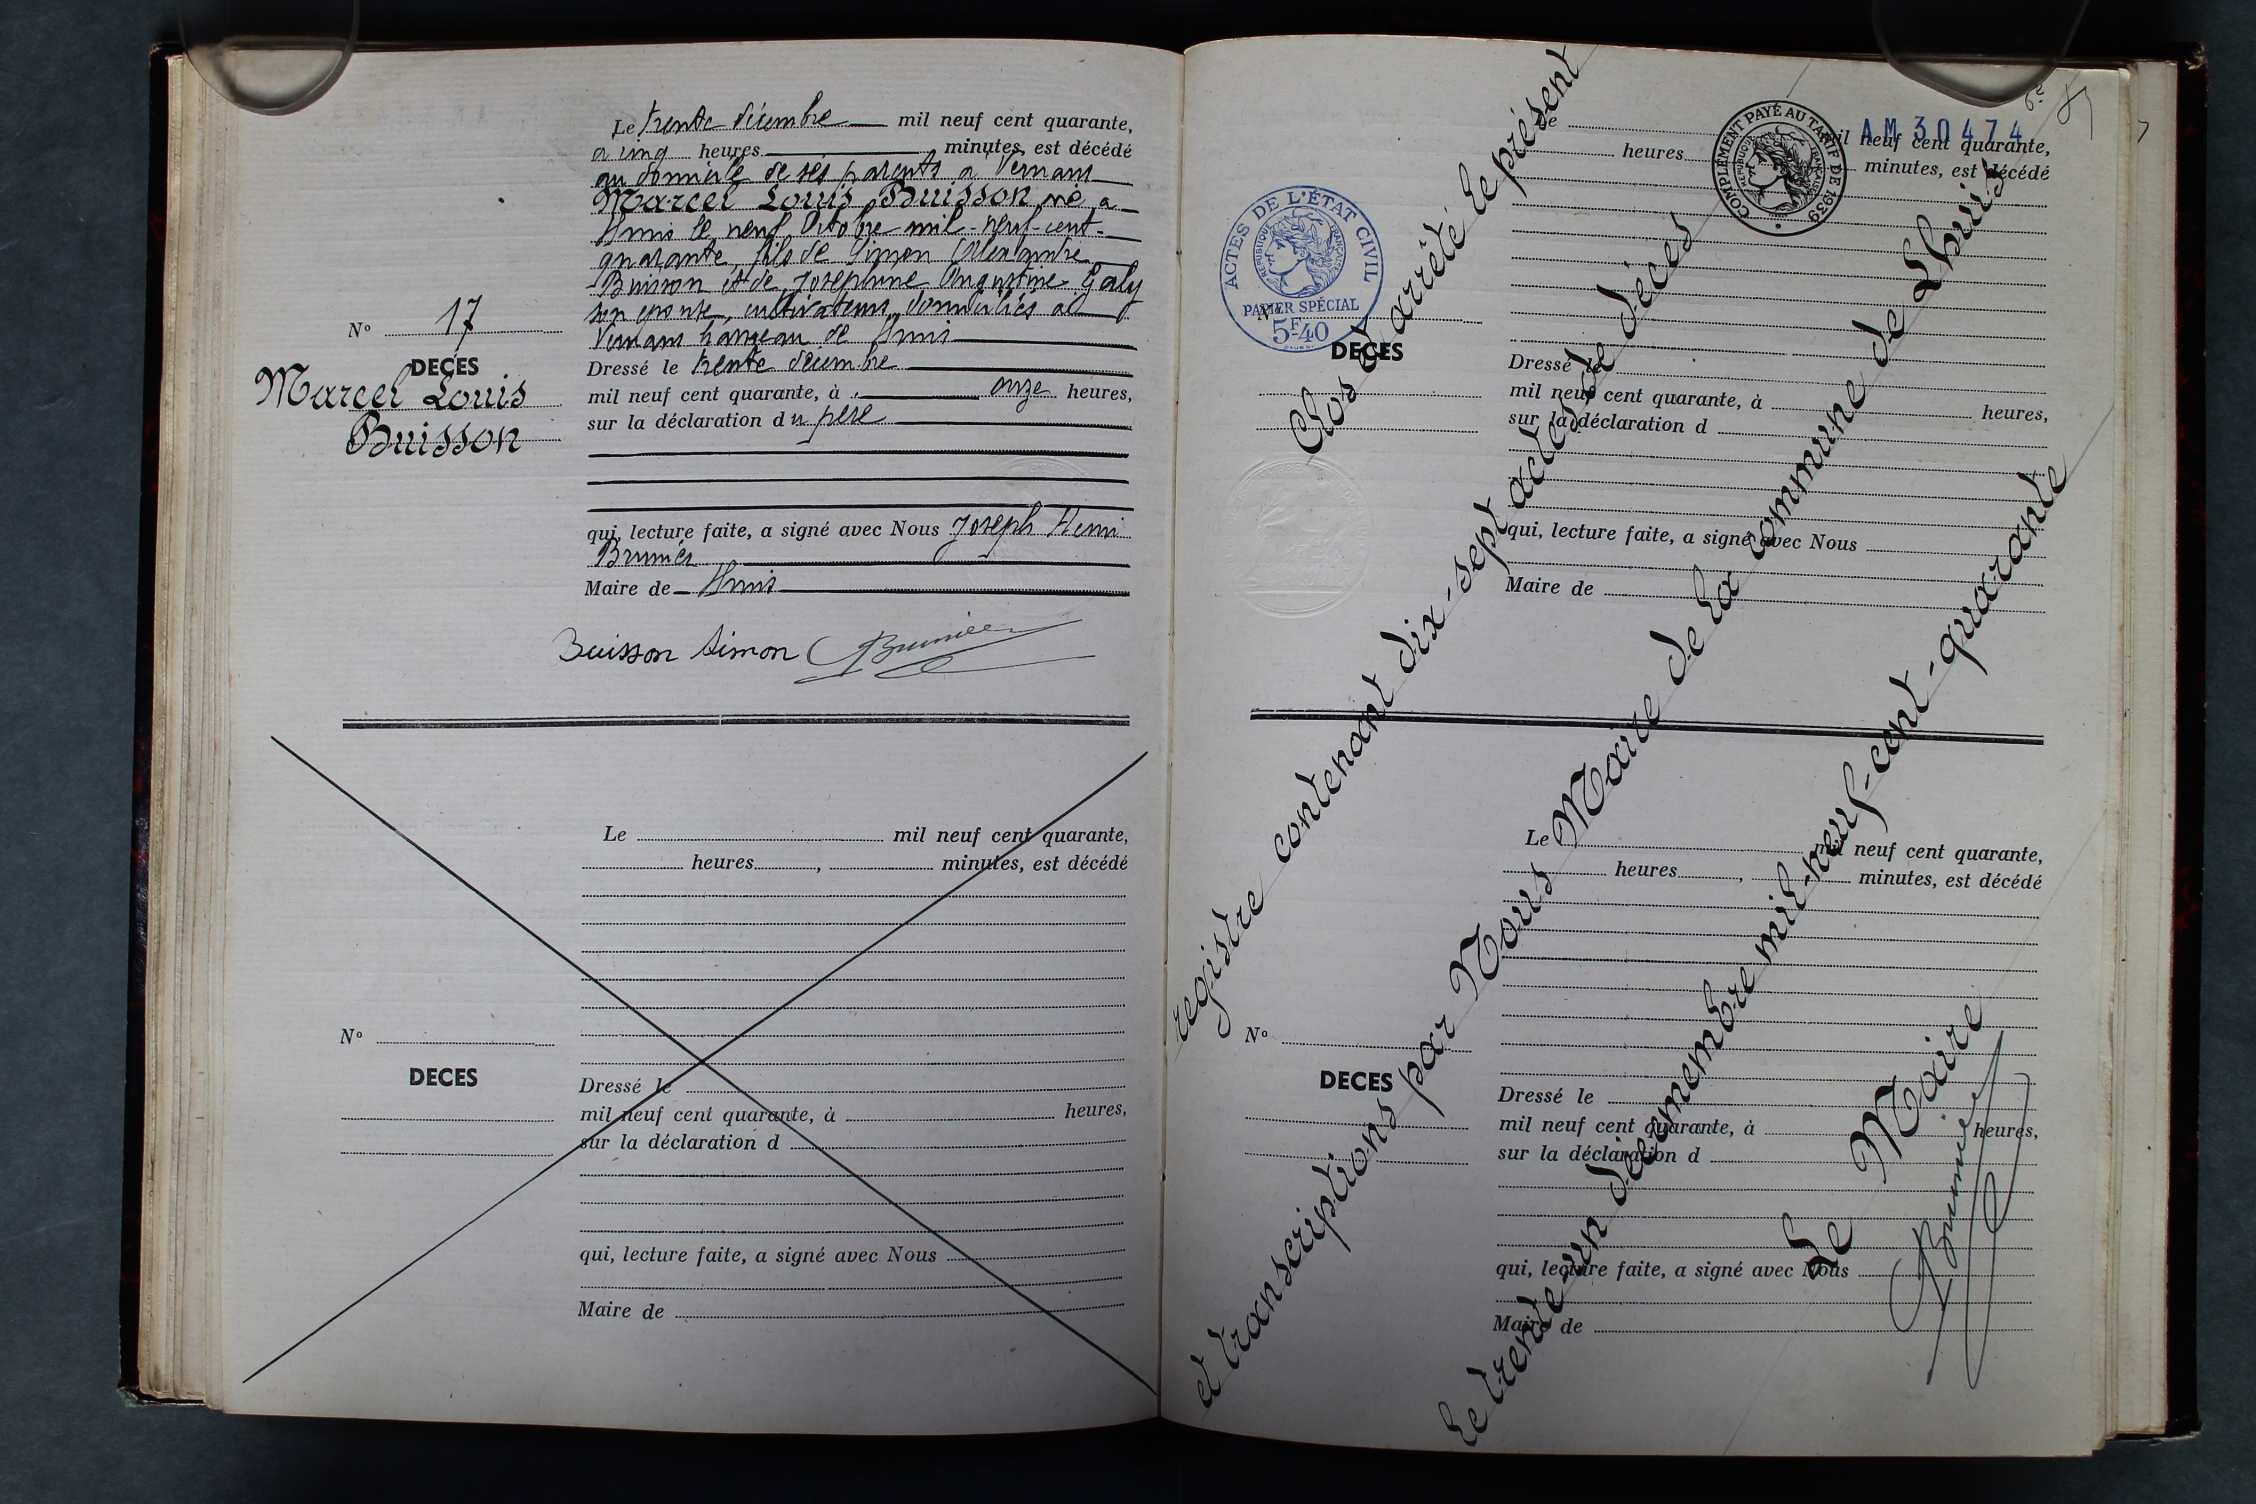 Le trente décembre mil neuf cent quarante,
à cinq heures minutes, est décédé
au domicile de ses parents à Vernans
Marcel Louis Buisson né à
Lhuis le neuf Octobre mil-neuf-cent-
quarante, fils de Simon Alexandre
Buisson et de Joséphine Augustine Galy
son épouse, cultivateurs, domiciliés à
Vernans hameau de Lhuis
N° 17
DECES
Marcel Louis
Buisson
Dressé le trente décembre
mil neuf cent quarante, à onze heures,
sur la déclaration du père
qui, lecture faite, a signé avec Nous Joseph Henri
Brunier
Maire de Lhuis
Buisson Simon Brunier
Le mil neuf cent quarante,
heures, minutes, est décédé
N°
DECES
Dressé le
mil neuf cent quarante, à heures,
sur la déclaration d
qui, lecture faite, a signé avec Nous
Maire de
AM 30474
COMPLÉMENT PAYÉ AU TARIF DE 1939
RÉPUBLIQUE FRANÇAISE
ACTES DE L'ÉTAT CIVIL
RÉPUBLIQUE FRANÇAISE
PAPIER SPÉCIAL
5F40
Le mil neuf cent quarante,
heures minutes, est décédé
N°
DECES
Dressé le
mil neuf cent quarante, à heures,
sur la déclaration d
qui, lecture faite, a signé avec Nous
Maire de
Clos et arrêté le présent
registre contenant dix-sept actes de décès
et transcriptions par Nous Maire de la commune de Lhuis
le trente-un décemembre mil-neuf-cent-quarante
Le Maire
Brunier
Le mil neuf cent quarante,
heures, minutes, est décédé
N°
DECES
Dressé le
mil neuf cent quarante, à heures,
sur la déclaration d
qui, lecture faite, a signé avec Nous
Maire de